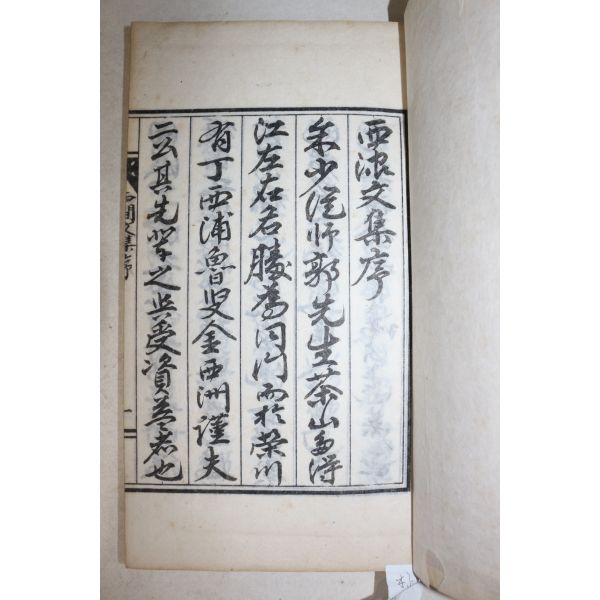 西澗文集序
余少從師郭先生茶山多得
江左右名勝為同門而於榮川
有丁西浦魯叟金西洲謹夫
二公其先輩之與受資益者也
西澗文集序
一